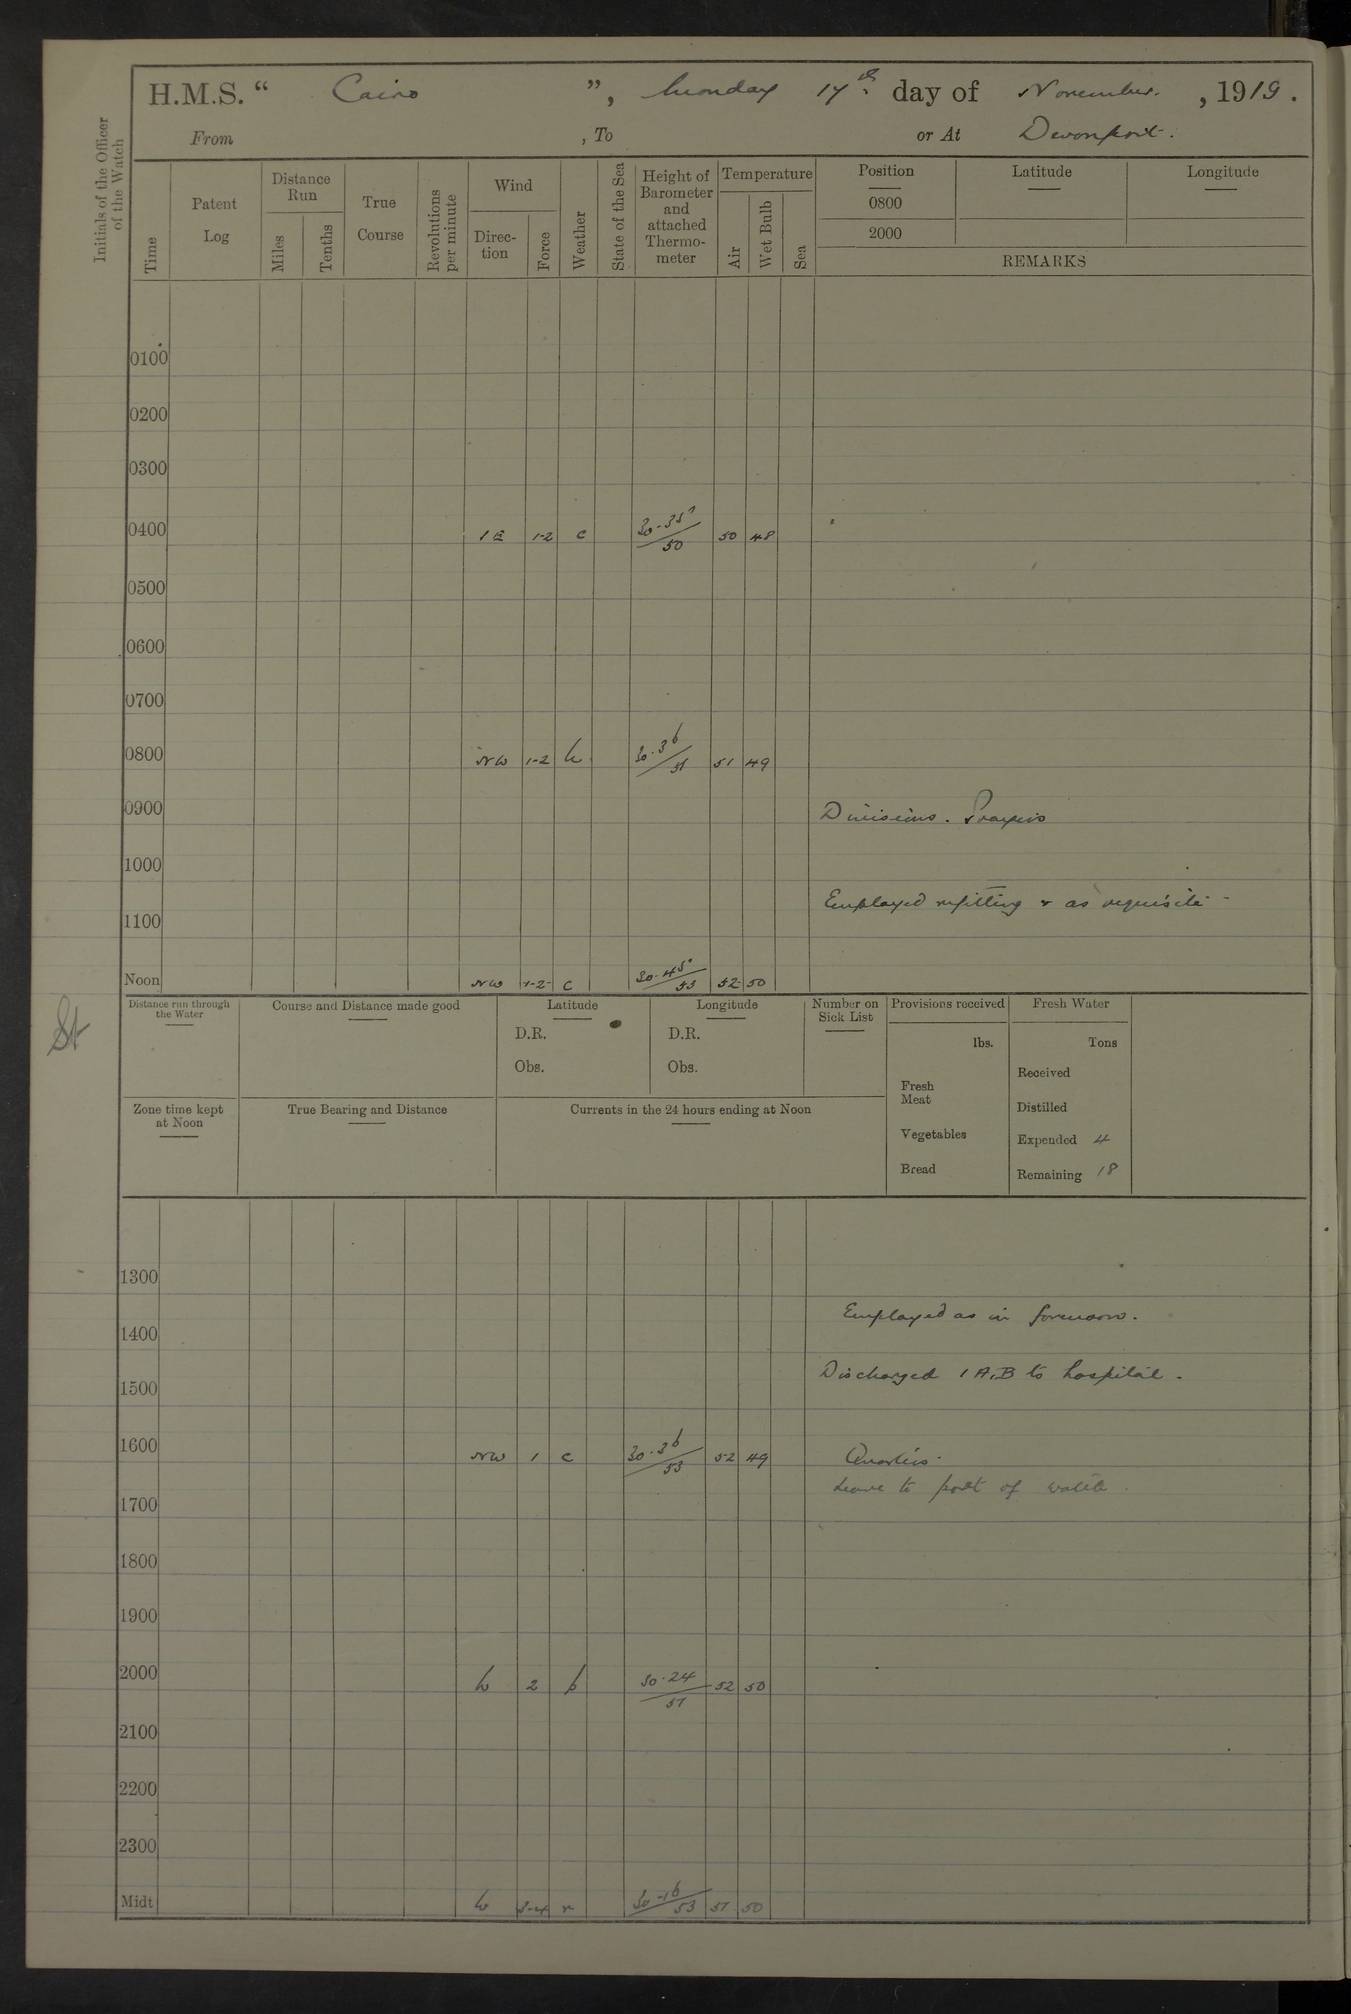 H.M.S. “ Cairo ”, Monday 17th. day of November. , 1919.
From , To or At Devonport.
Initials of the Officer of the Watch
Time
Patent Log
Distance Run
Miles
Tenths
True Course
Revolutions per minute
Wind
Direction
Force
Weather
State of the Sea
Height of Barometer and attached Thermometer
Temperature
Air
Wet Bulb
Sea
Position Latitude Longitude
0800
2000
REMARKS
0100
0200
0300
0400 1-2 c 30.35 50 50 48
0500
0600
0700
0800 NW 1-2 30.36 51 51 49
0900 Divisions. Prayers
1000
Employed refitting & as requisite -
1100
Noon NW 1-2 c 30.45 53 52 50
Distance run through the Water
Course and Distance made good
Latitude
D.R.
Obs.
Longitude
D.R.
Obs.
Number on Sick List
Provisions received
lbs.
Fresh Meat
Vegetables
Bread
Fresh Water
Tons
Received
Distilled
Expended 4
Remaining 18
Zone time kept at Noon
True Bearing and Distance
Currents in the 24 hours ending at Noon
1300
Employed as in forenoon.
1400
Discharged 1 A.B to hospital.
1500
1600 NW 1 c 30.36 53 52 49 Quarters.
Leave to port of watch
1700
1800
1900
2000 W 2 b 30.24 51 52 50
2100
2200
2300
Midt W 3-4 r 30.16 53 51 50